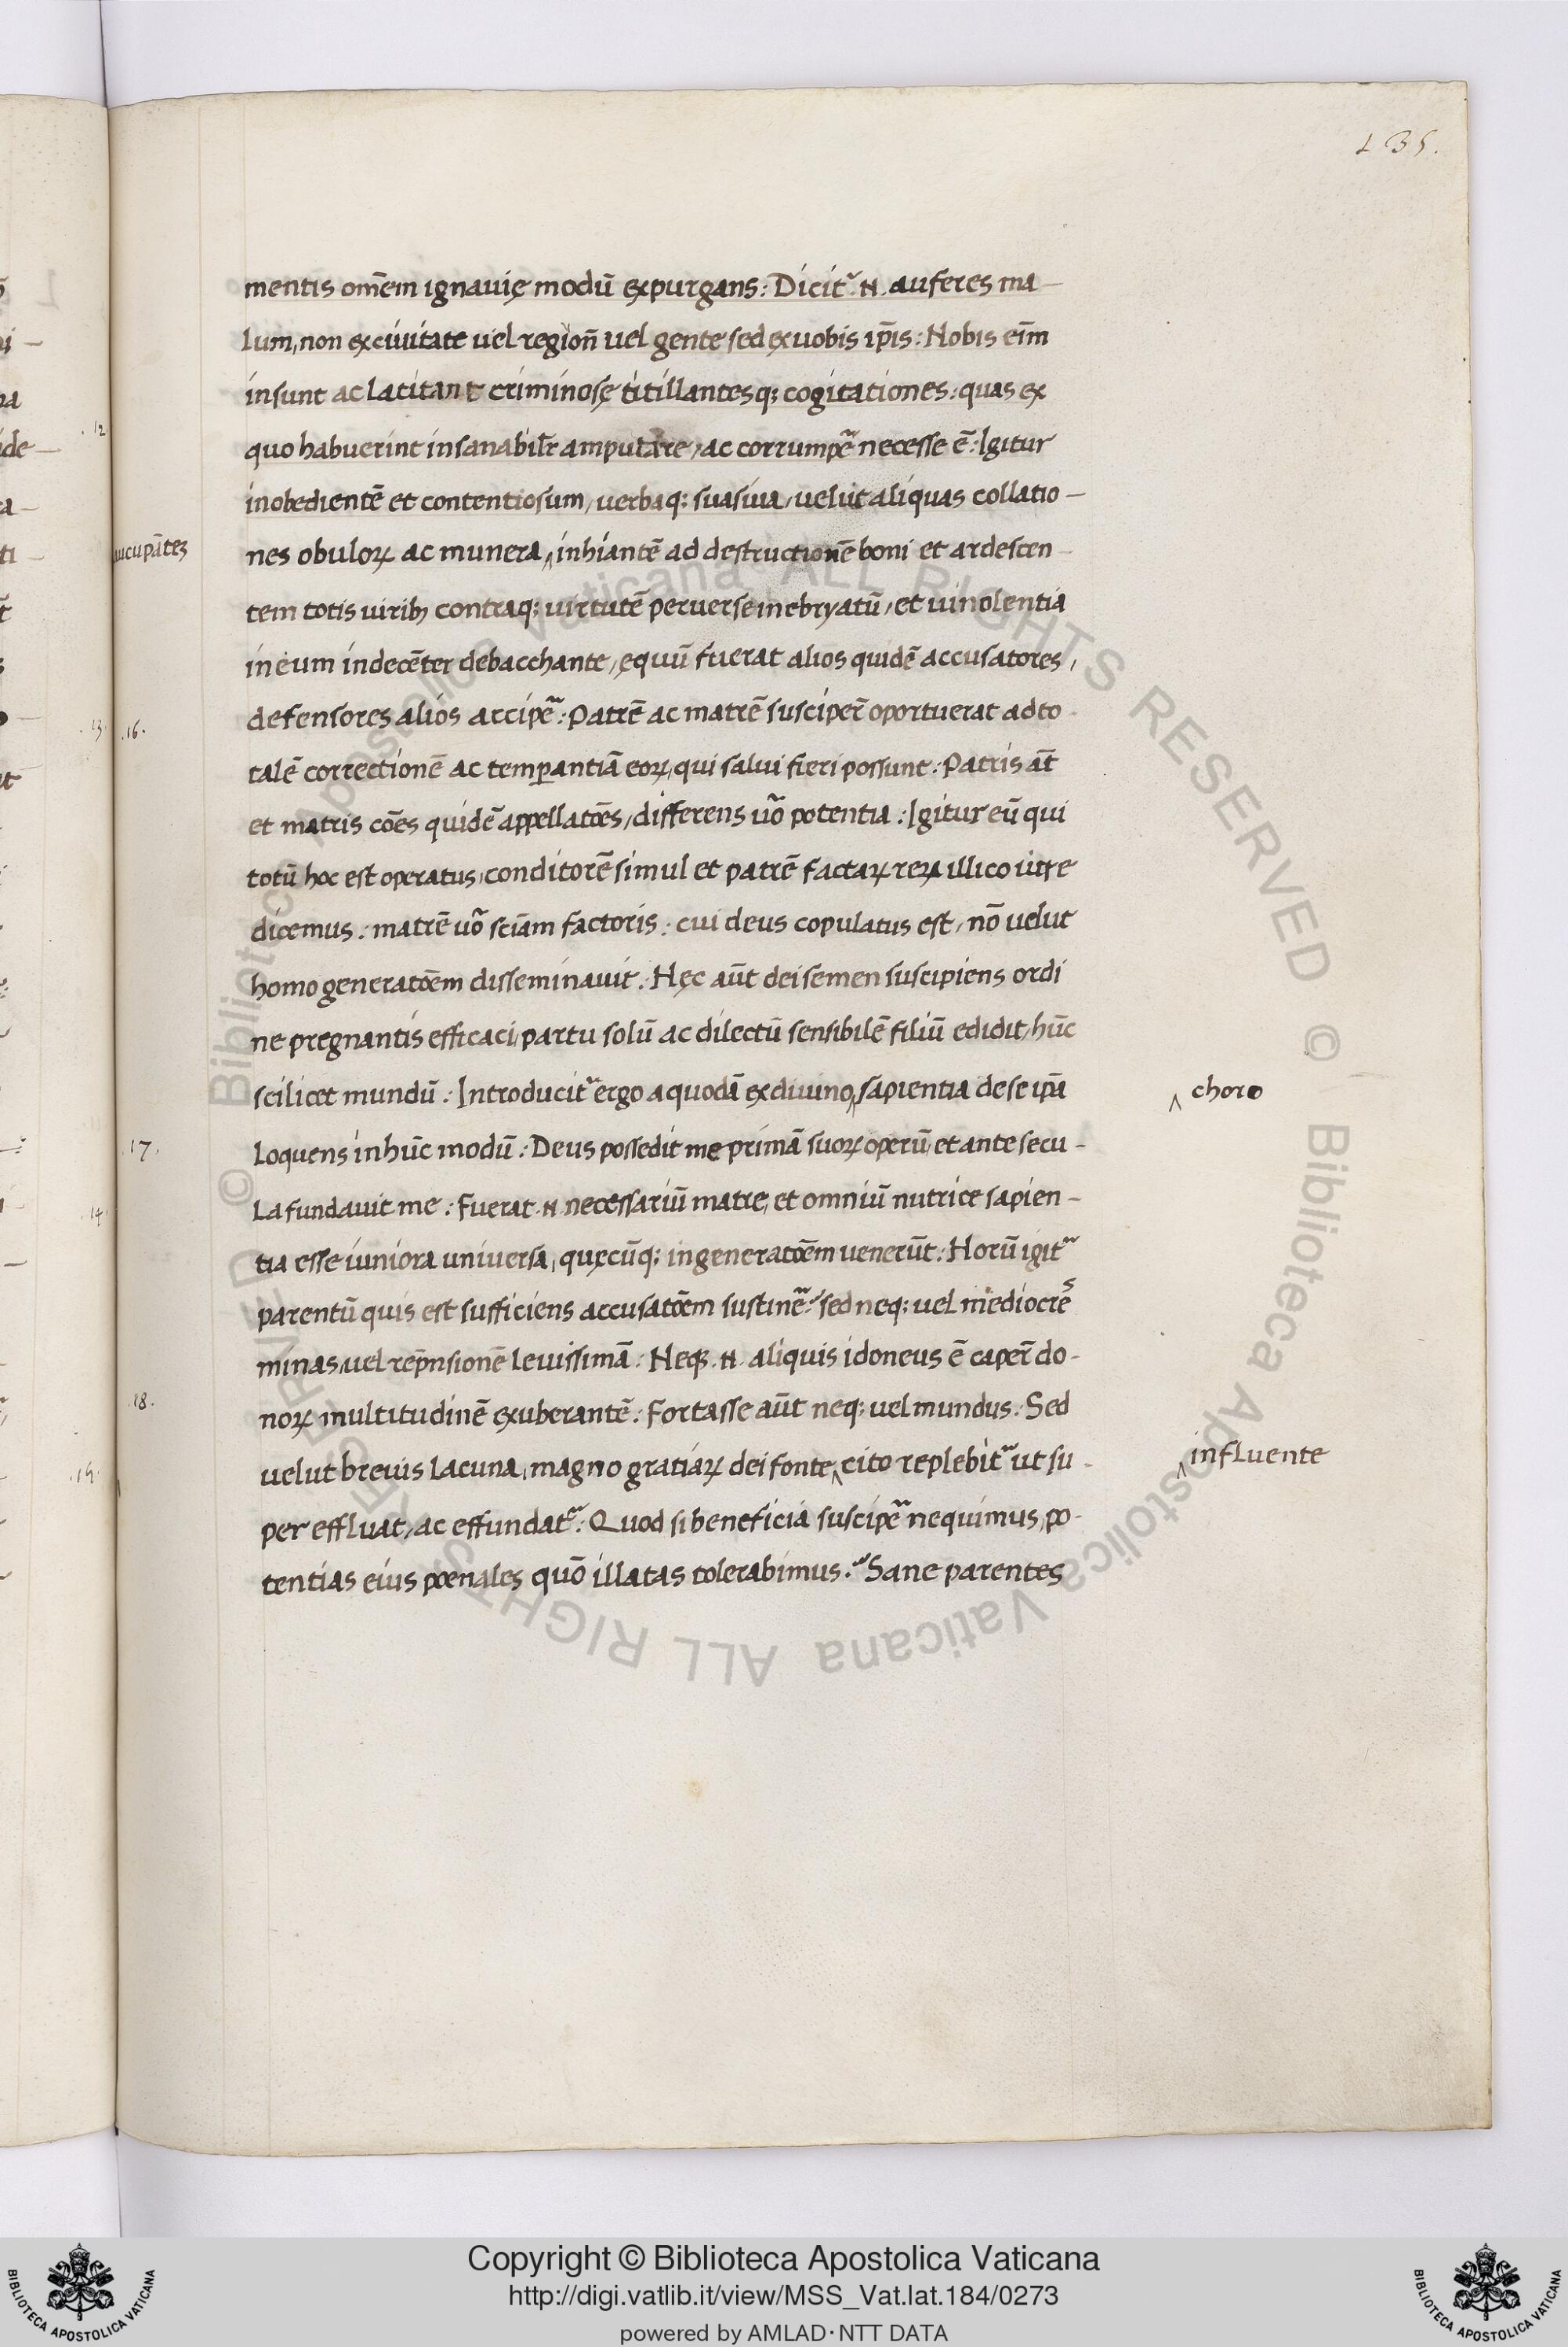 135.
mentis om̄em ignauię modū expurgans: Dicit᷑ .N. auferes ma-
lum, non ex ciuitate uel region̄ uel gente sed ex uobis ip̄is: Nobis eim̄
insunt ac latitant criminosę titillantesq; cogitationes: quas ex
quo habuerint insanabilr̄ amputare, ac corrumpe᷑ necesse ē: Igitur
inobedientē et contentiosum, uerbaq; suasiua, uelut aliquas collatio-
aucupātes
nes obuloꝝ ac munera ‸ inhiantē ad destructionē boni et ardescen-
tem totis uirib; contraq; uirtutē peruerse inebryatū, et uinolentia
in eum indecēter debacchante, ęquū fuerat alios quidē accusatores,
defensores alios accipe᷑: Patrē ac matrē susciper̄ oportuerat ad to-
.16.
talē correctionē ac temꝑantiā eoꝝ, qui salui fieri possunt: Patris āt
et matris cōēs quidē appellatōēs, differens uo᷑ potentia: Igitur eū qui
totū hoc est operatus, conditorē simul et patrē factaꝝ reꝝ illico iure
dicemus: matrē uo᷑ sciām factoris: cui deus copulatus est, nō uelut
homo generatōēm disseminauit: Hęc aūt dei semen suscipiens ordi
ne pregnantis efficaci, partu solū ac dilectū sensibilē filiū edidit, hūc
scilicet mundū: Introducit᷑ ergo a quodā ex diuino ‸ sapientia de se ip̄a
‸ choro
17.
loquens in hūc modū: Deus possedit me primā suoꝝ operū, et ante secu-
la fundauit me: Fuerat .N. necessariū matre, et omniū nutrice sapien-
tia esse iuniora uniuersa, quęcūq; in generatōēm uenerūt: Horū igit᷑
parentū quis est sufficiens accusatōēm sustine᷑? sed neq; uel mediocrēs
minas, uel rep̄nsionē leuissimā: Neq; .N. aliquis idoneus ē caper̄ do-
.18.
noꝝ multitudinē exuberantē: Fortasse aūt neq; uel mundus: Sed
uelut breuis lacuna, magno gratiaꝝ dei fonte ‸ cito replebit᷑ ut su-
‸ influente
per effluat, ac effundat᷑: Quod si beneficia suscipe᷑ nequimus, po-
tentias eius poenales quō illatas tolerabimus? Sane parentes
Copyright © Biblioteca Apostolica Vaticana
http://digi.vatlib.it/view/MSS_Vat.lat.184/0273
powered by AMLAD·NTT DATA
BIBLIOTECA APOSTOLICA VATICANA
BIBLIOTECA APOSTOLICA VATICANA
© Biblioteca Apostolica Vaticana ALL RIGHTS RESERVED © Biblioteca Apostolica Vaticana ALL RIGHTS RESERVED